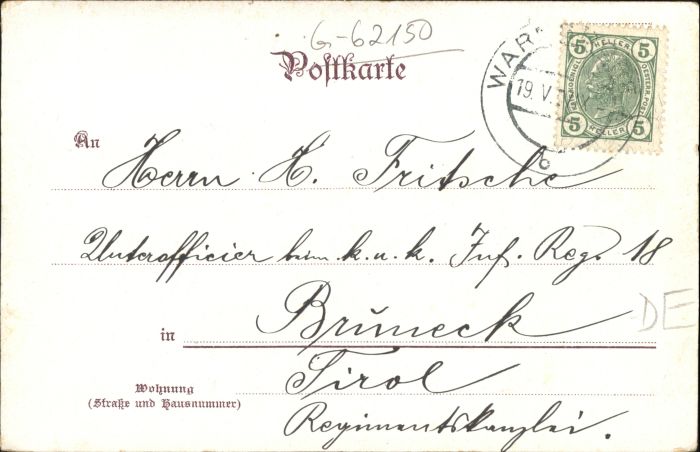 G-62150
Postkarte
WAR
19. V.
b
5 HELLER 5
KAIS. KOENIGL. OESTERR. POST
5 HELLER 5
An
Herrn H. Fritsche
Unterofficier beim k. u. k. Inf. Reg. 18
in Bruneck
DE
Tirol
Wohnung
(Straße und Hausnummer)
Regimentskanzlei.